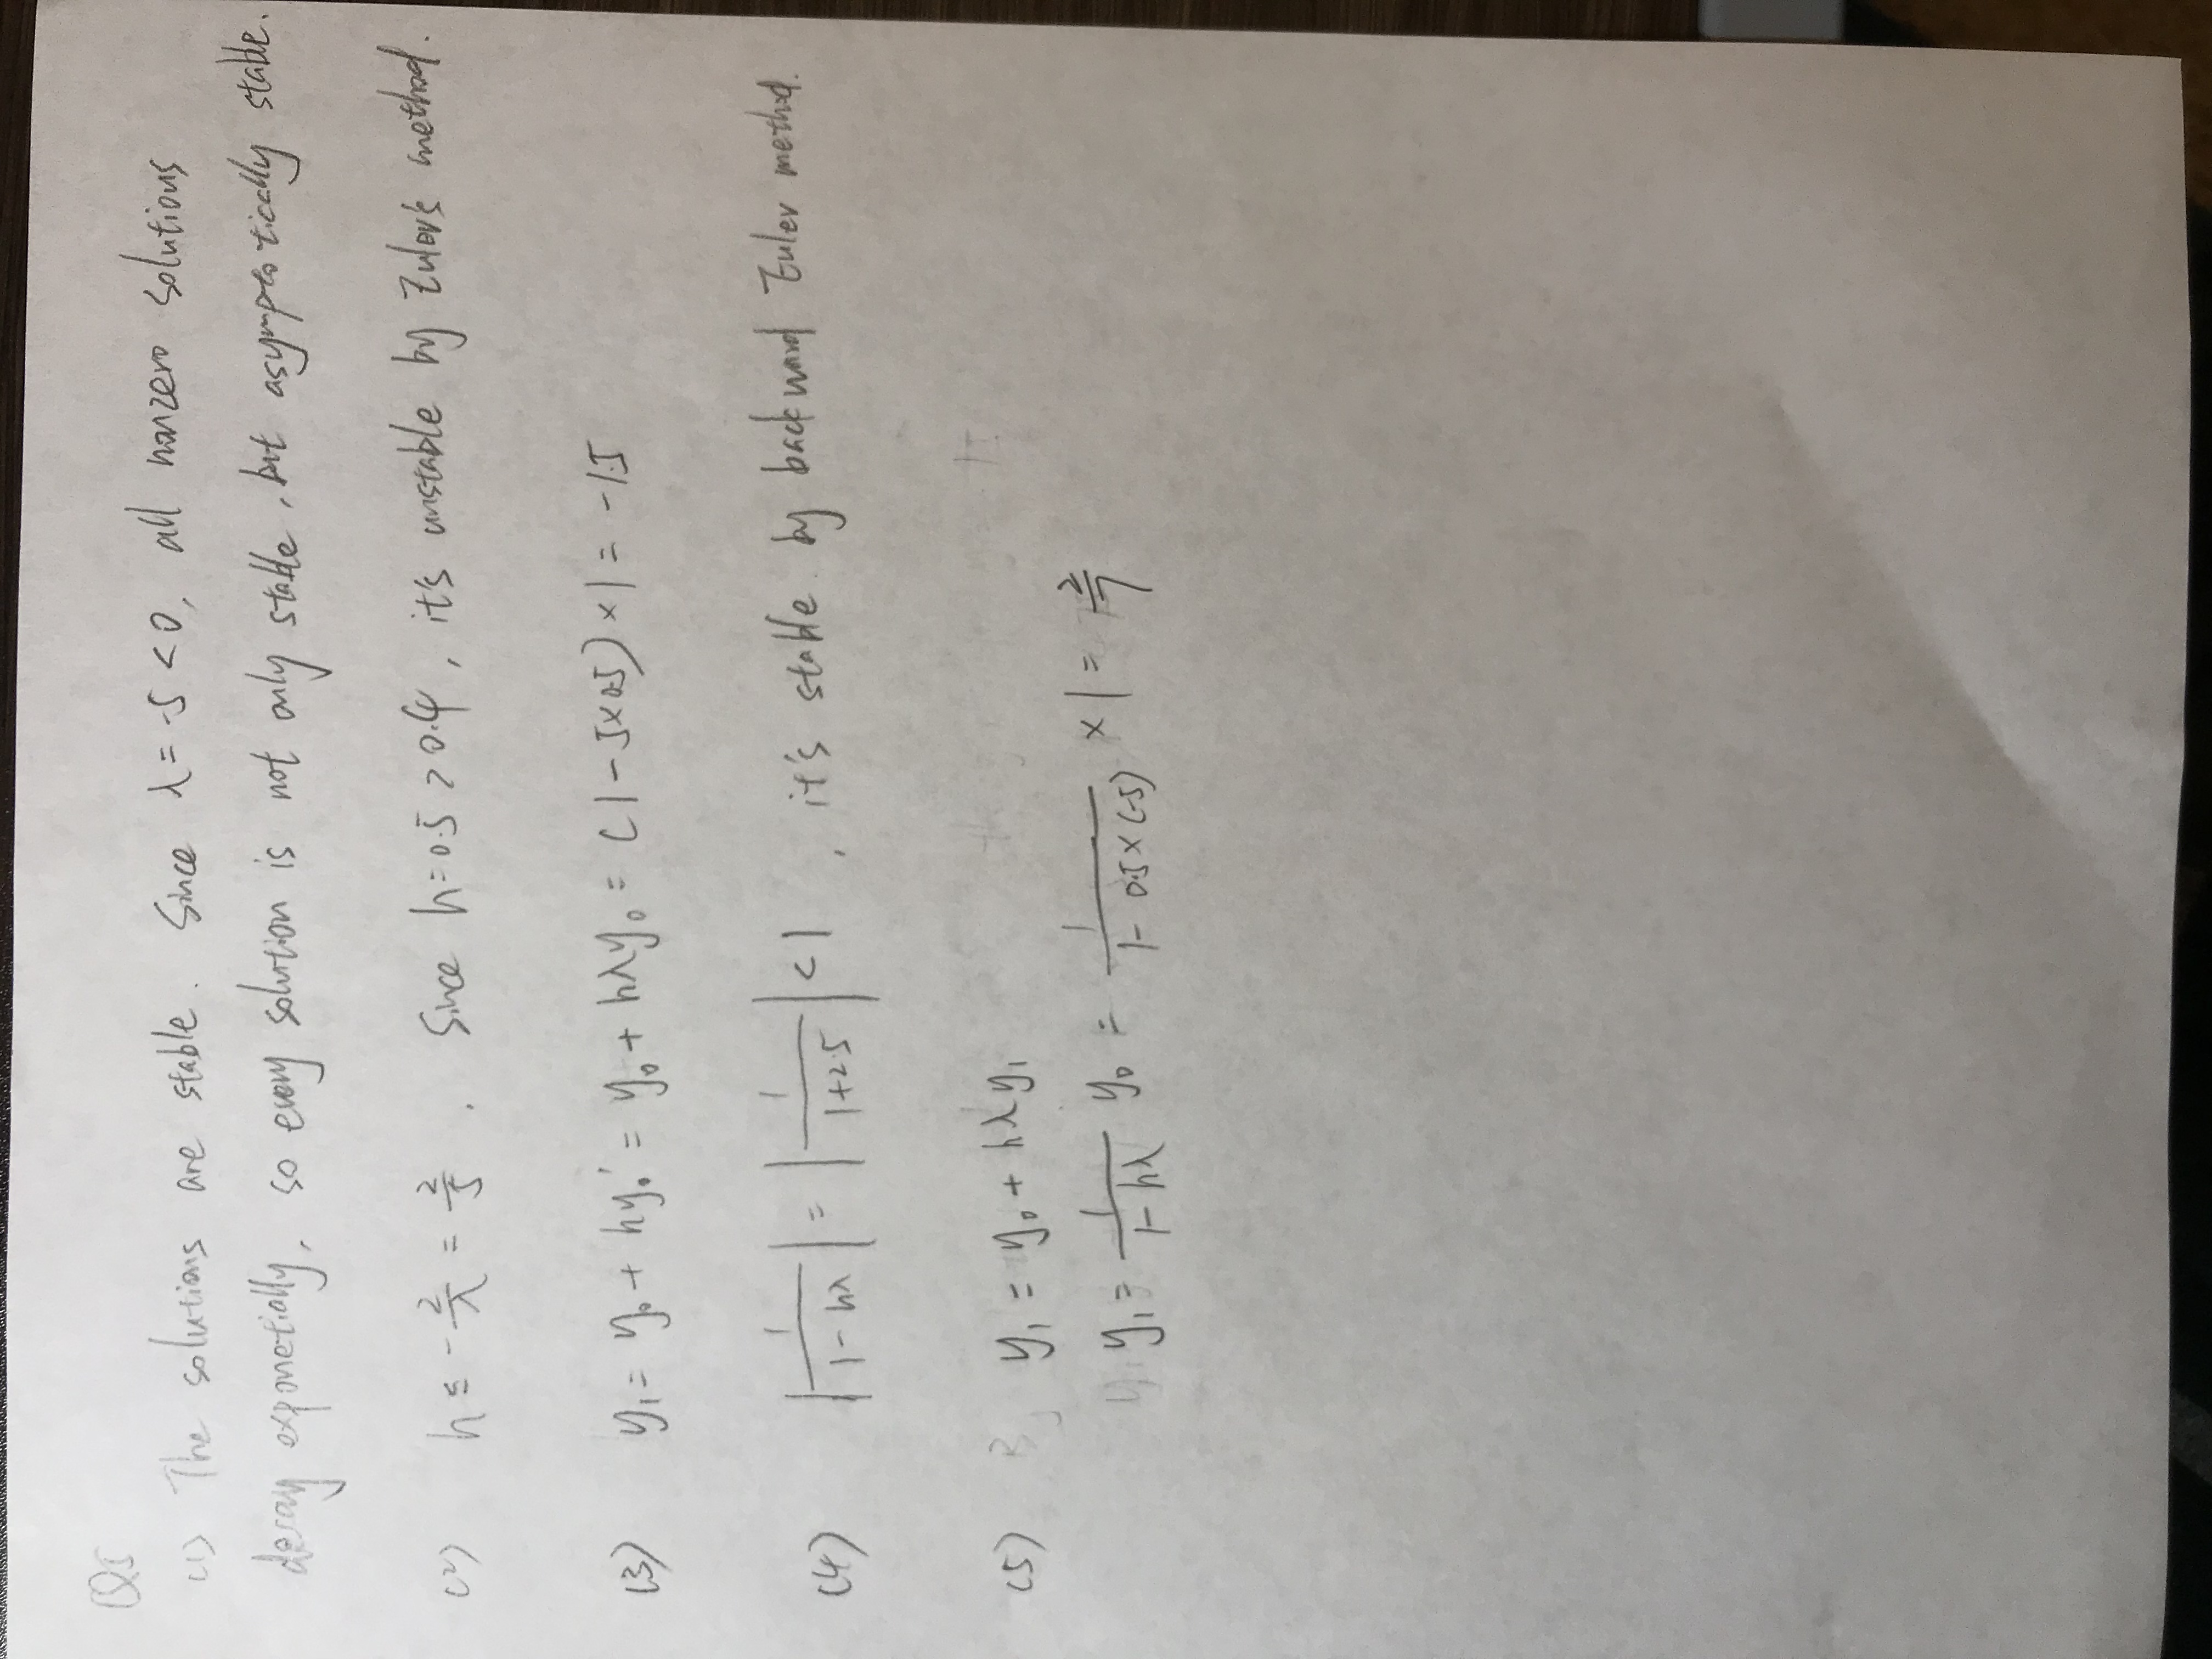 Q5
(1) The solutions are stable. Since λ = -5 < 0, all nonzero solutions
decay exponetially, so every solution is not only stable, but asymptotically stable.
(2) h ≤ -2/λ = 2/5. Since h=0.5 > 0.4, it's unstable by Euler's method.
(3) y₁ = y₀ + hy₀' = y₀ + hλy₀ = (1 - 5×0.5) × 1 = -1.5
(4) |1/(1-hλ)| = |1/(1+2.5)| < 1, it's stable by backward Euler method.
(5) y₁ = y₀ + hλy₁
y₁ = 1/(1-hλ) y₀ = 1/(1-0.5×(-5)) × 1 = 2/7